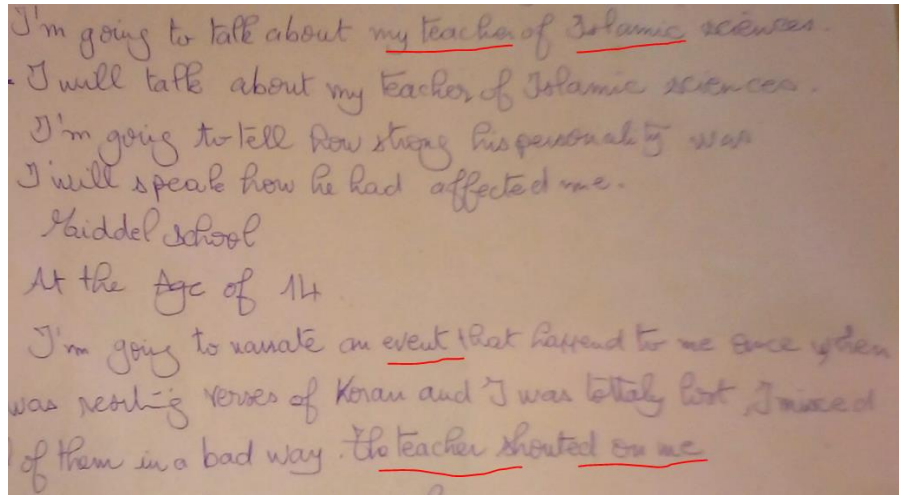 I'm going to talk about my teacher of Islamic sciences.
- I will talk about my teacher of Islamic sciences.
I'm going to tell how strong his personality was
I will speak how he had affected me.
Middel school
At the Age of 14
I'm going to narrate an event that happend to me once when
was reciting verses of Koran and I was tottaly lost, I mixed
of them in a bad way. the teacher shouted on me